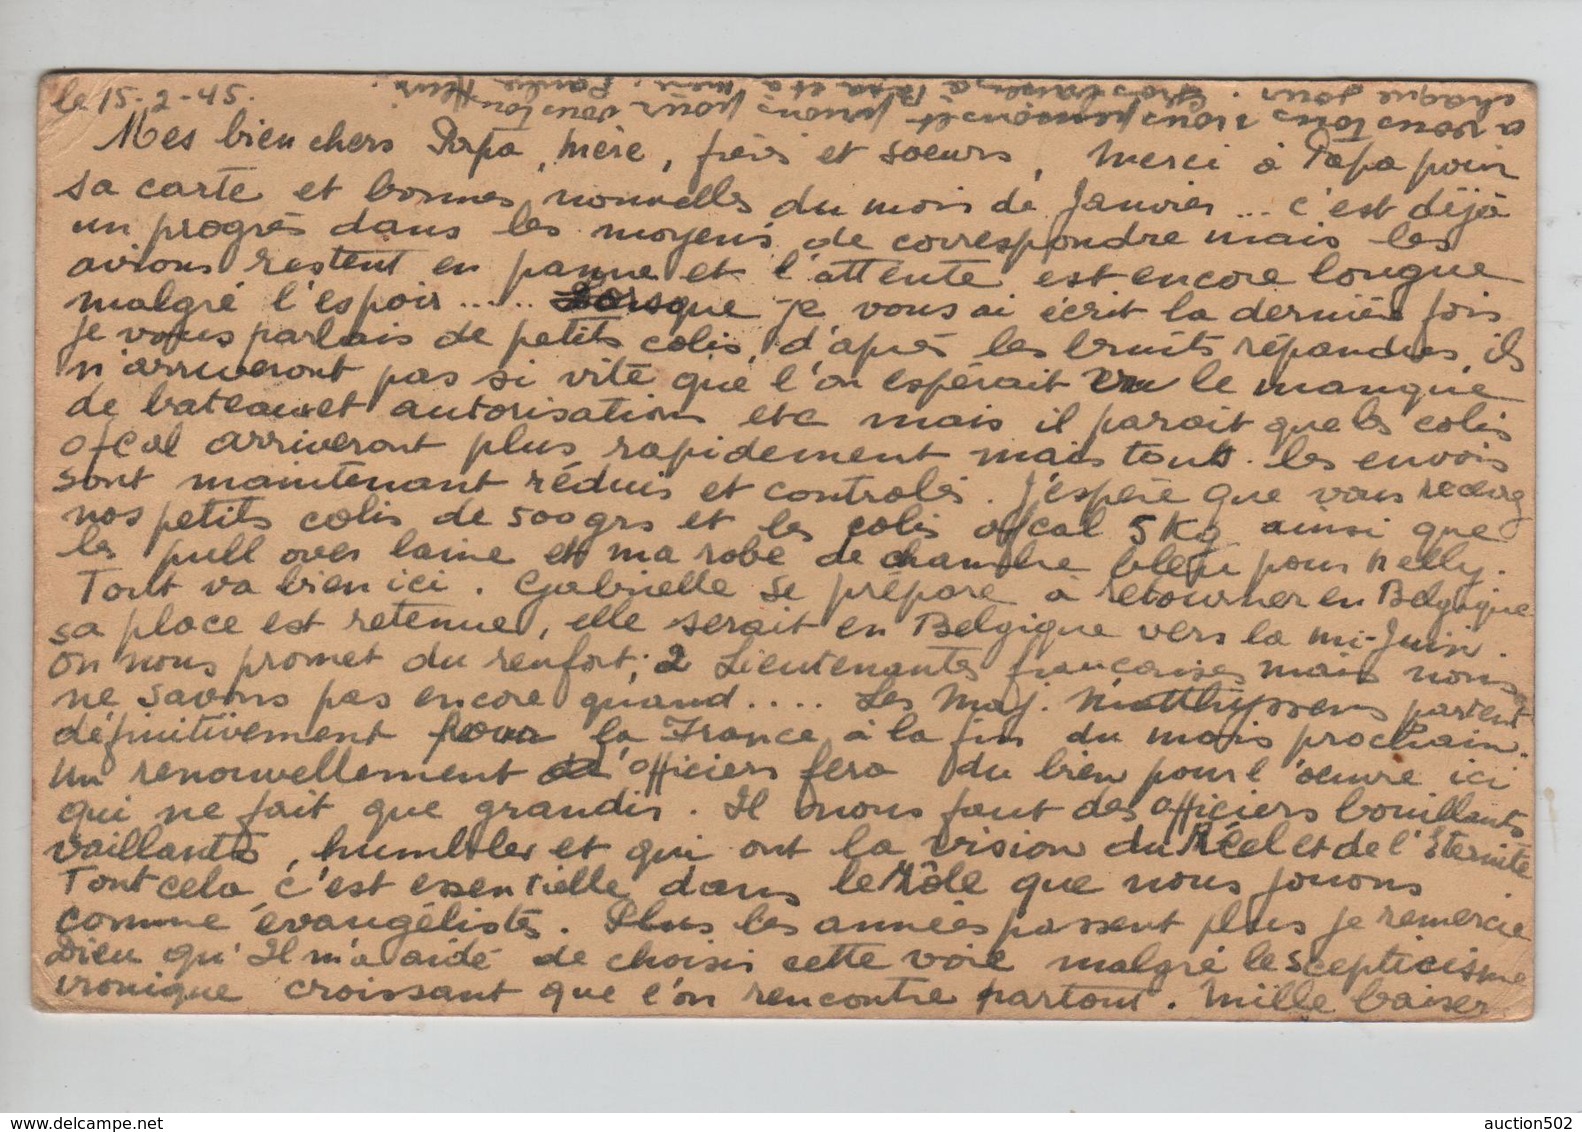 le 15-2-45.
Mes bien chers Papa, mère, frères et soeurs, Merci à Papa pour
sa carte et bonnes nouvelles du mois de Janvier... c'est déjà
un progrès dans les moyens de correspondre mais les
avions restent en panne et l'attente est encore longue
malgré l'espoir...... Lorsque je vous ai écrit la dernière fois
je vous parlais de petits colis, d'après les bruits répandus ils
n'arriveront pas si vite que l'on espérait vu le manque
de bateaux et autorisation etc mais il parait que les colis
ofcal arriveront plus rapidement mais tous les envois
sont maintenant réduis et controlés. J'espère que vous recevrez
nos petits colis de 500grs et les colis ofcal 5Kg ainsi que
les pull over laine et ma robe de chambre bleu pour Nelly.
Tout va bien ici. Gabrielle se prépare à retourner en Belgique
sa place est retenue, elle serait en Belgique vers la mi-Juin.
On nous promet du renfort; 2 Lieutenantes françaises mais nous
ne savons pas encore quand..... Les Maj. Matthyssens partent
définitivement pour la France à la fin du mois prochain.
Un renouvellement d'officiers fera du bien pour l'oeuvre ici
qui ne fait que grandir. Il nous faut des officiers bouillants
vaillants, humbles et qui ont la vision du Réel et de l'Eternité.
Tout cela, c'est essentielle dans le Rôle que nous jouons
comme évangélistes. Plus les années passent plus je remercie
Dieu qu'Il m'a aidé de choisir cette voie malgré le scepticisme
ironique croissant que l'on rencontre partout. Mille baiser
à vous tous nous pensons et prions pour vous tous
chaque jour. Gros baisers à Papa et à mère.
auction502